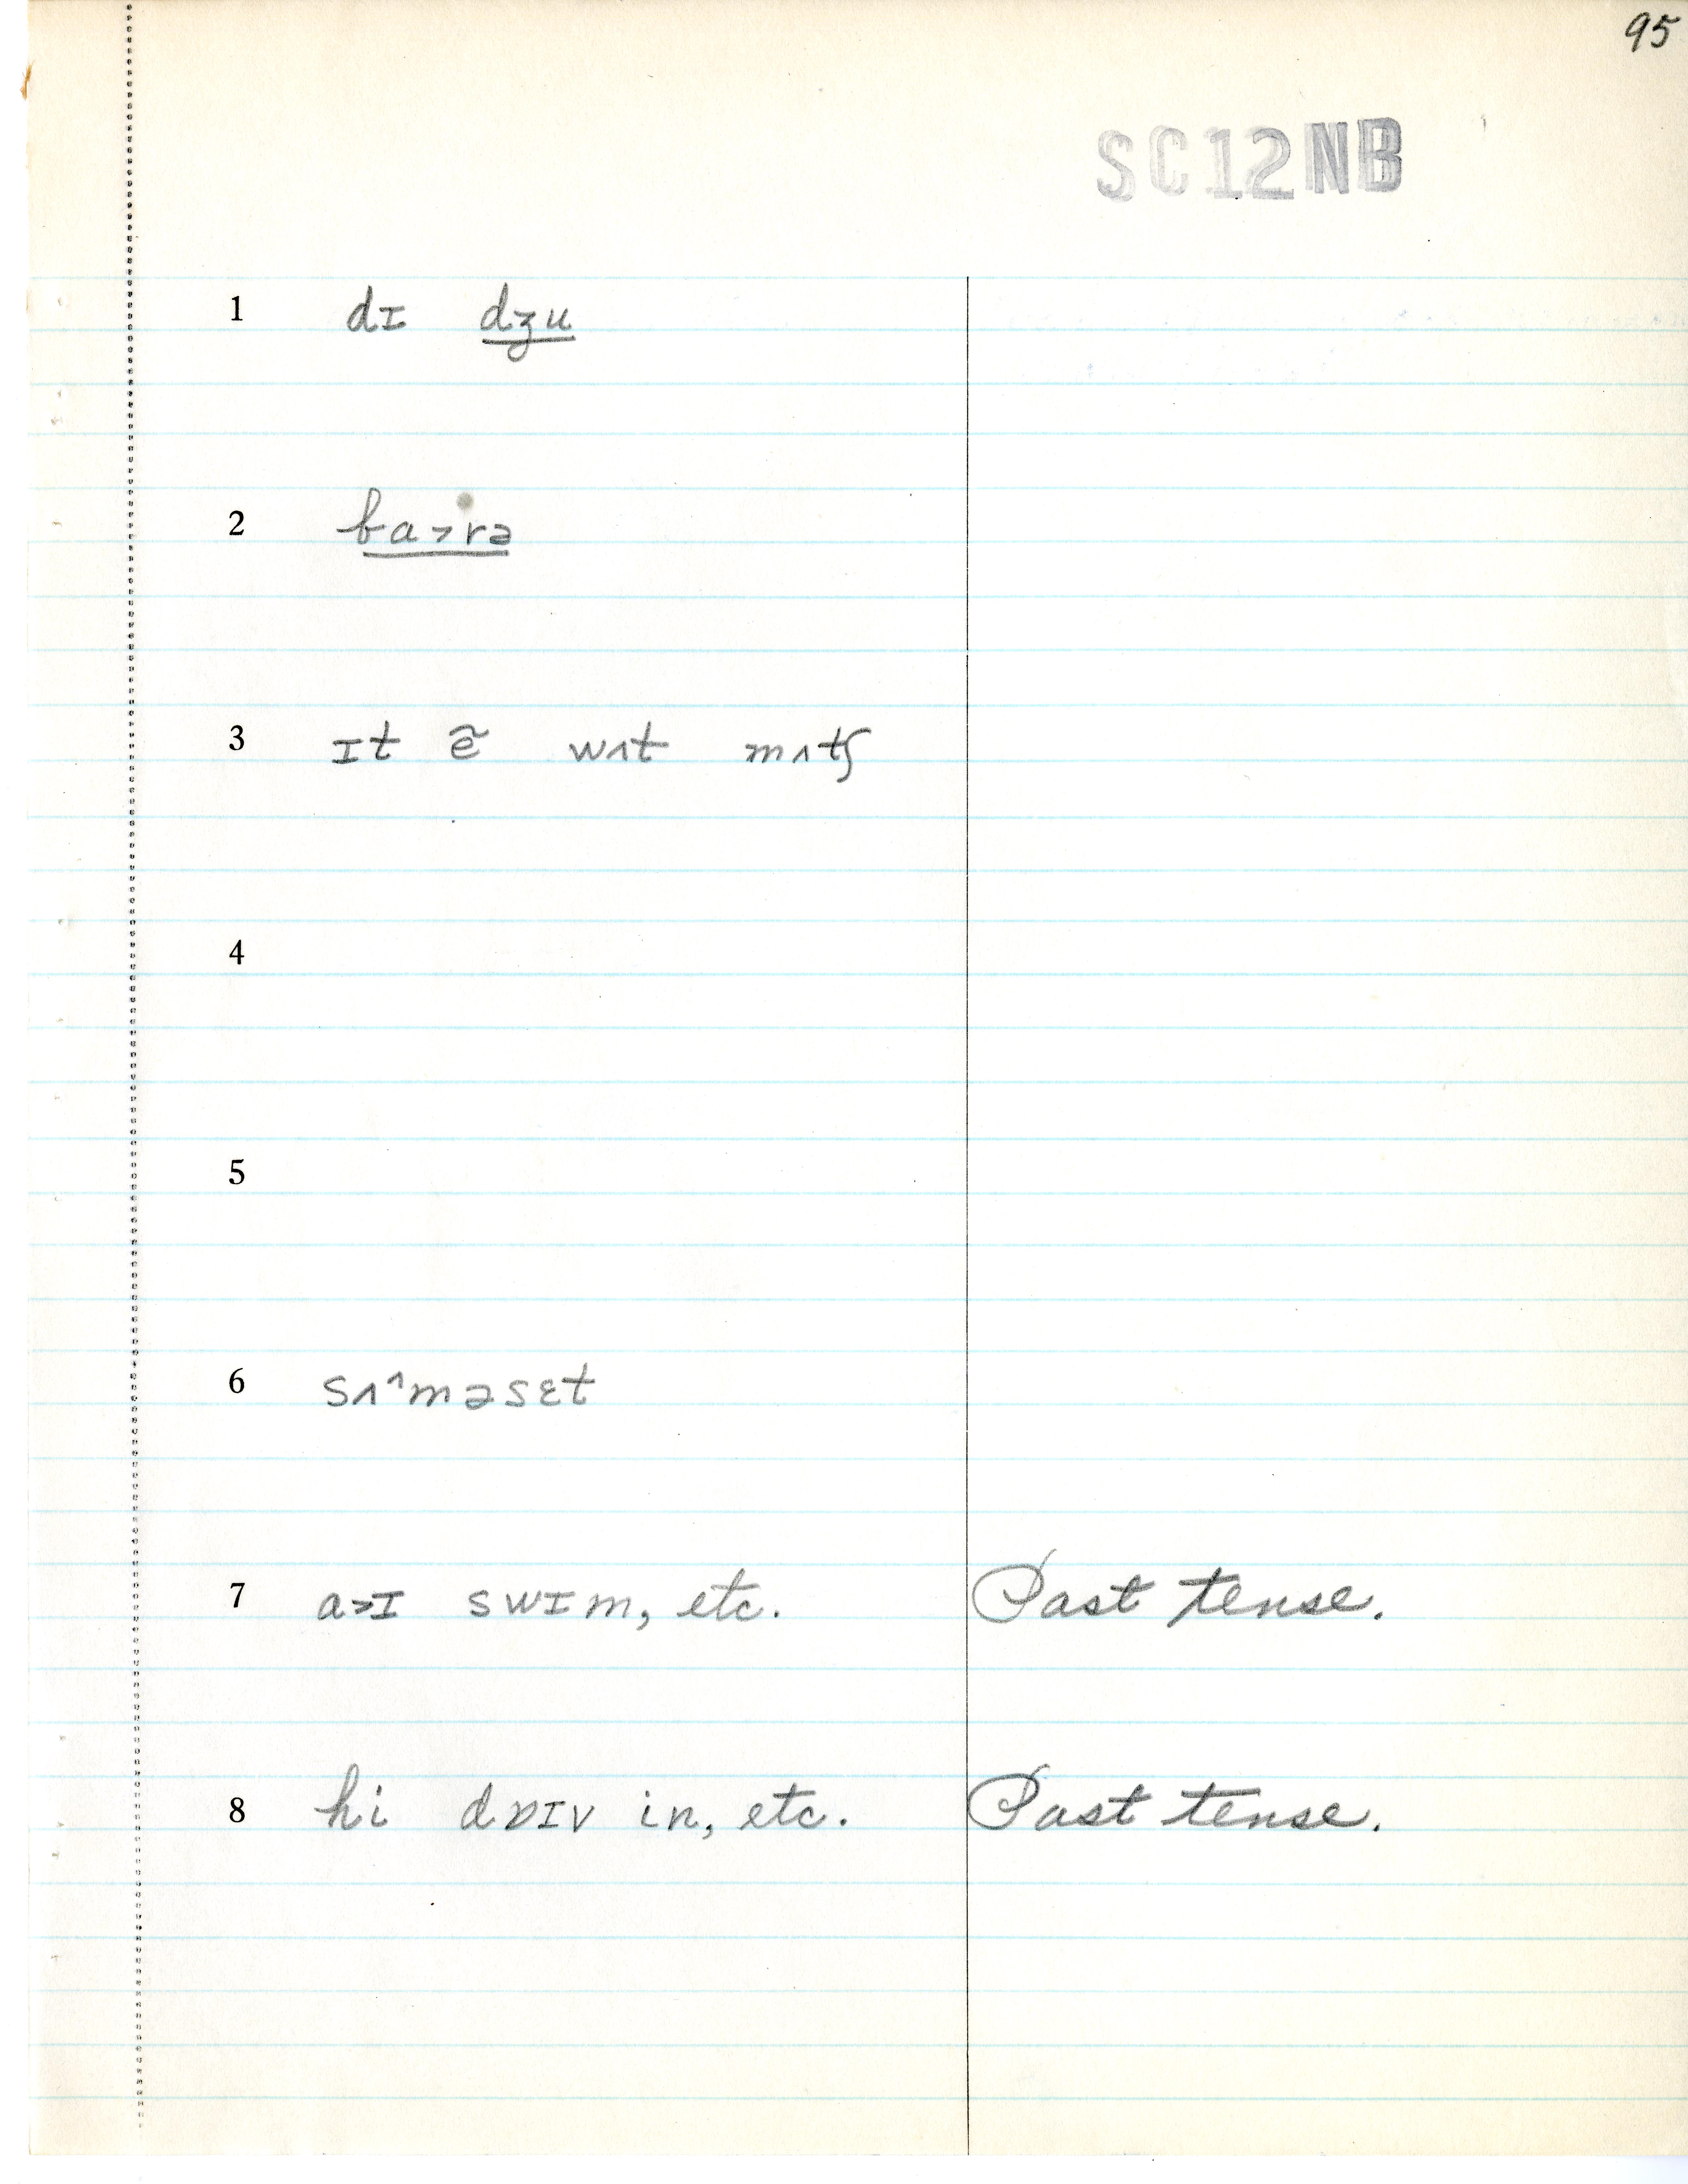 95
SC12NB
1 dɪ dʒu
2 ba˃rə
3 ɪt ẽ wʌt mʌtʃ
4
5
6 sʌ^məsɛt
7 a˃ɪ swɪm, etc. Past tense.
8 hi dɒɪv in, etc. Past tense.